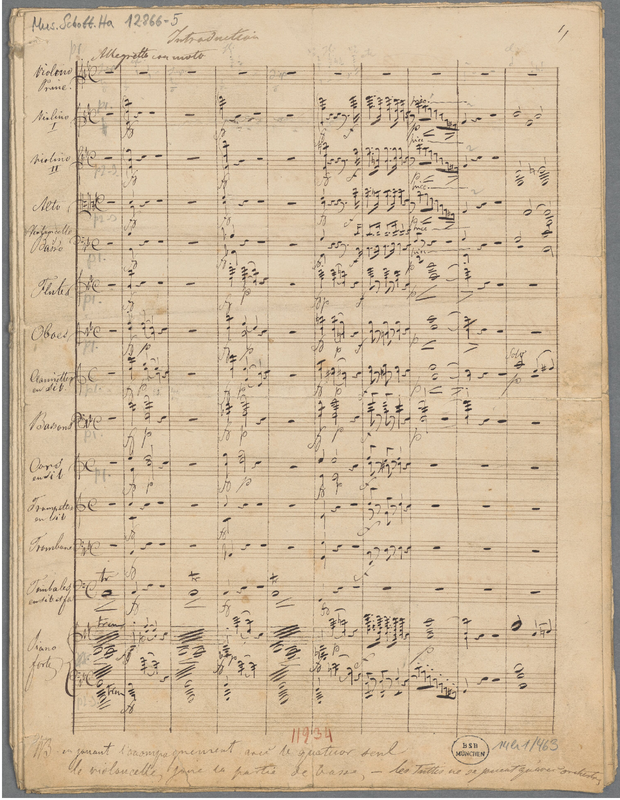 Mus. Schott. Ha 12866-5
Introduction
4
Allegretto con moto
Violono
Princ.
Violino
I
Violino
II
Alto
Violoncello
Basso
Flutes
Oboes
Clarinettes
en sib
Bassons
Cors
en sib
Trompettes
en sib
Trombone
Timbales
en sib et fa
Piano
forte
pizz
pizz
pizz
pizz
Solo
tr
Trem
Trem
11934
NB en jouant l'accompagnement avec le quatuor seul
le violoncelle joue la partie de basse, — les Tuttis ne se jouent qu'avec orchestre
BSB
MÜNCHEN